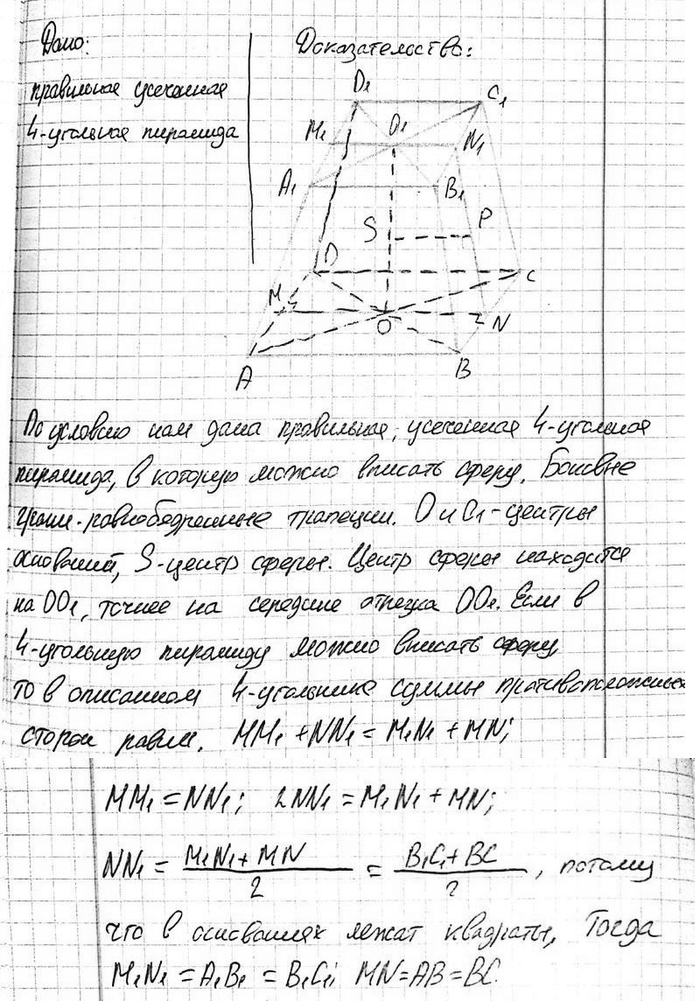 Дано:
Доказательство:
правильная усеченная
4-угольная пирамида
D1
C1
M1
O1
N1
A1
B1
S
P
D
C
M
O
N
A
B
По условию нам дана правильная, усеченная 4-угольная
пирамида, в которую можно вписать сферу. Боковые
грани-равнобедренные трапеции. O и O1-центры
оснований, S-центр сферы. Центр сферы находится
на OO1, точнее на середине отрезка OO1. Если в
4-угольную пирамиду можно вписать сферу
то в описанном 4-угольнике суммы противоположных
сторон равны. MM1 + NN1 = M1N1 + MN;
MM1 = NN1; 2NN1 = M1N1 + MN;
NN1 = (M1N1 + MN)/2 = (B1C1 + BC)/2, потому
что в основаниях лежат квадраты, Тогда
M1N1 = A1B1 = B1C1; MN = AB = BC.